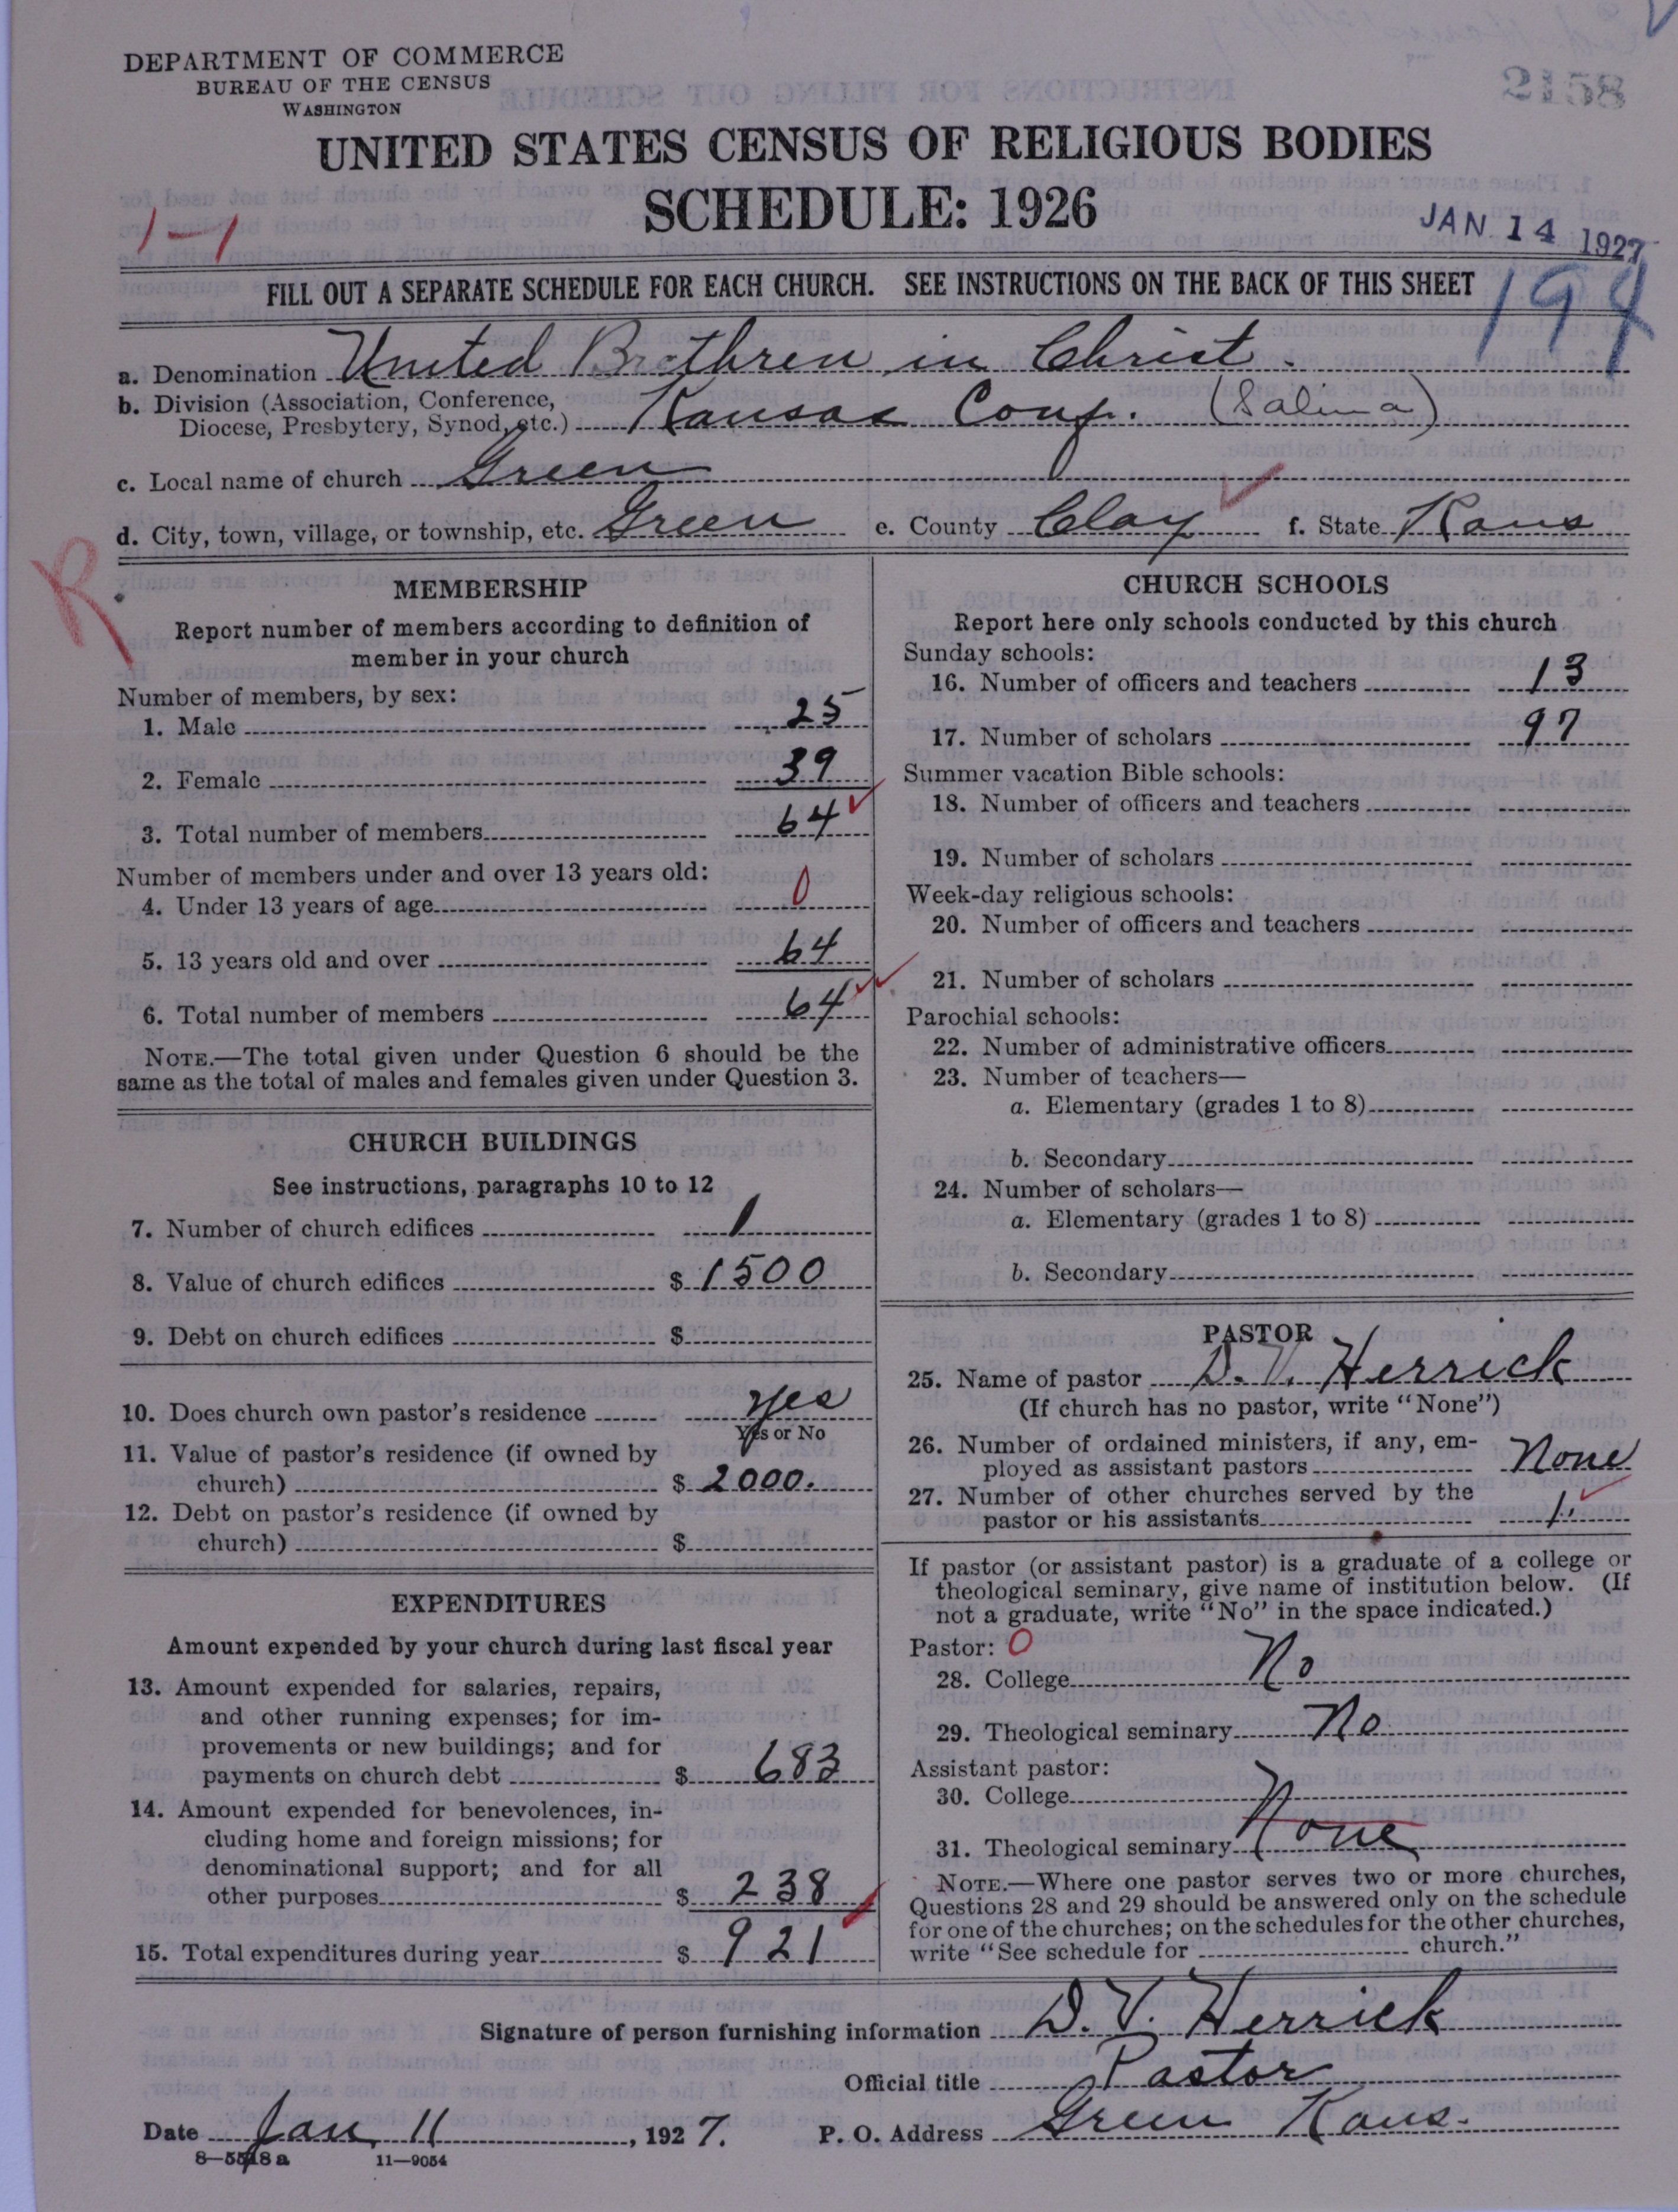 DEPARTMENT OF COMMERCE
BUREAU OF THE CENSUS
WASHINGTON
2158
UNITED STATES CENSUS OF RELIGIOUS BODIES
SCHEDULE: 1926
1-1
JAN 14 1927
FILL OUT A SEPARATE SCHEDULE FOR EACH CHURCH. SEE INSTRUCTIONS ON THE BACK OF THIS SHEET
194
a. Denomination United Brethren in Christ.
b. Division (Association, Conference,
Diocese, Presbytery, Synod, etc.) Kansas Conf. (Salina)
c. Local name of church Green
d. City, town, village, or township, etc. Green e. County Clay f. State Kans
R
MEMBERSHIP
Report number of members according to definition of
member in your church
Number of members, by sex:
1. Male 25
2. Female 39
3. Total number of members 64
Number of members under and over 13 years old:
4. Under 13 years of age 0
5. 13 years old and over 64
6. Total number of members 64
NOTE.—The total given under Question 6 should be the
same as the total of males and females given under Question 3.
CHURCH BUILDINGS
See instructions, paragraphs 10 to 12
7. Number of church edifices 1
8. Value of church edifices $ 1500
9. Debt on church edifices $
10. Does church own pastor's residence yes
Yes or No
11. Value of pastor's residence (if owned by
church) $ 2000.
12. Debt on pastor's residence (if owned by
church) $
EXPENDITURES
Amount expended by your church during last fiscal year
13. Amount expended for salaries, repairs,
and other running expenses; for im-
provements or new buildings; and for
payments on church debt $ 683
14. Amount expended for benevolences, in-
cluding home and foreign missions; for
denominational support; and for all
other purposes $ 238
15. Total expenditures during year $ 921
CHURCH SCHOOLS
Report here only schools conducted by this church
Sunday schools:
16. Number of officers and teachers 13
17. Number of scholars 97
Summer vacation Bible schools:
18. Number of officers and teachers
19. Number of scholars
Week-day religious schools:
20. Number of officers and teachers
21. Number of scholars
Parochial schools:
22. Number of administrative officers
23. Number of teachers—
a. Elementary (grades 1 to 8)
b. Secondary
24. Number of scholars—
a. Elementary (grades 1 to 8)
b. Secondary
PASTOR
25. Name of pastor D. V. Herrick
(If church has no pastor, write "None")
26. Number of ordained ministers, if any, em-
ployed as assistant pastors None
27. Number of other churches served by the
pastor or his assistants 1.
If pastor (or assistant pastor) is a graduate of a college or
theological seminary, give name of institution below. (If
not a graduate, write "No" in the space indicated.)
Pastor: 0
28. College No
29. Theological seminary No
Assistant pastor:
30. College
31. Theological seminary None
NOTE.—Where one pastor serves two or more churches,
Questions 28 and 29 should be answered only on the schedule
for one of the churches; on the schedules for the other churches,
write "See schedule for church."
Signature of person furnishing information D. V. Herrick
Official title Pastor
Date Jan 11, 1927. P. O. Address Green Kans.
8—5518a 11—9054